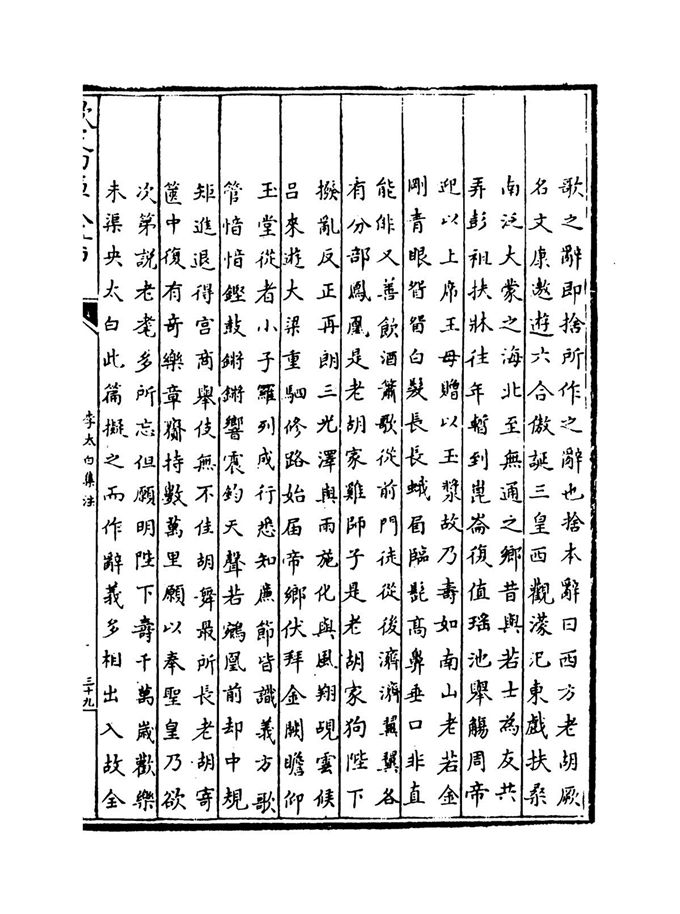 歌之辭即捨所作之辭也捨本辭曰西方老胡厥
名文康遨遊六合傲誕三皇西觀濛汜東戲扶桑
南泛大蒙之海北至無通之鄉昔與若士為友共
弄彭祖扶牀往年暫到崑崙復值瑤池舉觴周帝
迎以上席王母贈以玉漿故乃壽如南山老若金
剛青眼眢眢白髮長長蛾眉臨髭高鼻垂口非直
能俳又善飲酒簫歌從前門徒從後濟濟翼翼各
有分部鳳凰是老胡家雞師子是老胡家狗陛下
撥亂反正再朗三光澤與雨施化與風翔覘雲候
呂來遊大梁重駟修路始屆帝鄉伏拜金闕瞻仰
玉堂從者小子羅列成行悉知廉節皆識義方歌
管愔愔鏗鼓鏘鏘響震鈞天聲若鵷凰前却中規
矩進退得宮商舉伎無不佳胡舞最所長老胡寄
篋中復有奇樂章齎持數萬里願以奉聖皇乃欲
次第説老耄多所忘但願明陛下壽千萬歲歡樂
未渠央太白此篇擬之而作辭義多相出入故全
李太白集注
三十九